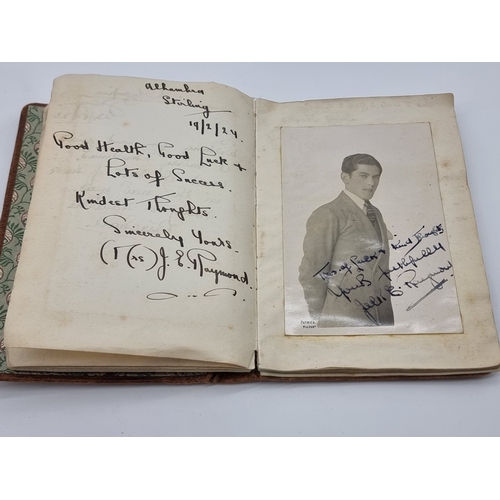 Alhambra
Stirling
19/2/24
Good Health, Good Luck &
Lots of Success.
Kindest Thoughts.
Sincerely Yours.
(Mrs) J. E. Raymond.
Kind Thoughts
Yours faithfully
Raymond